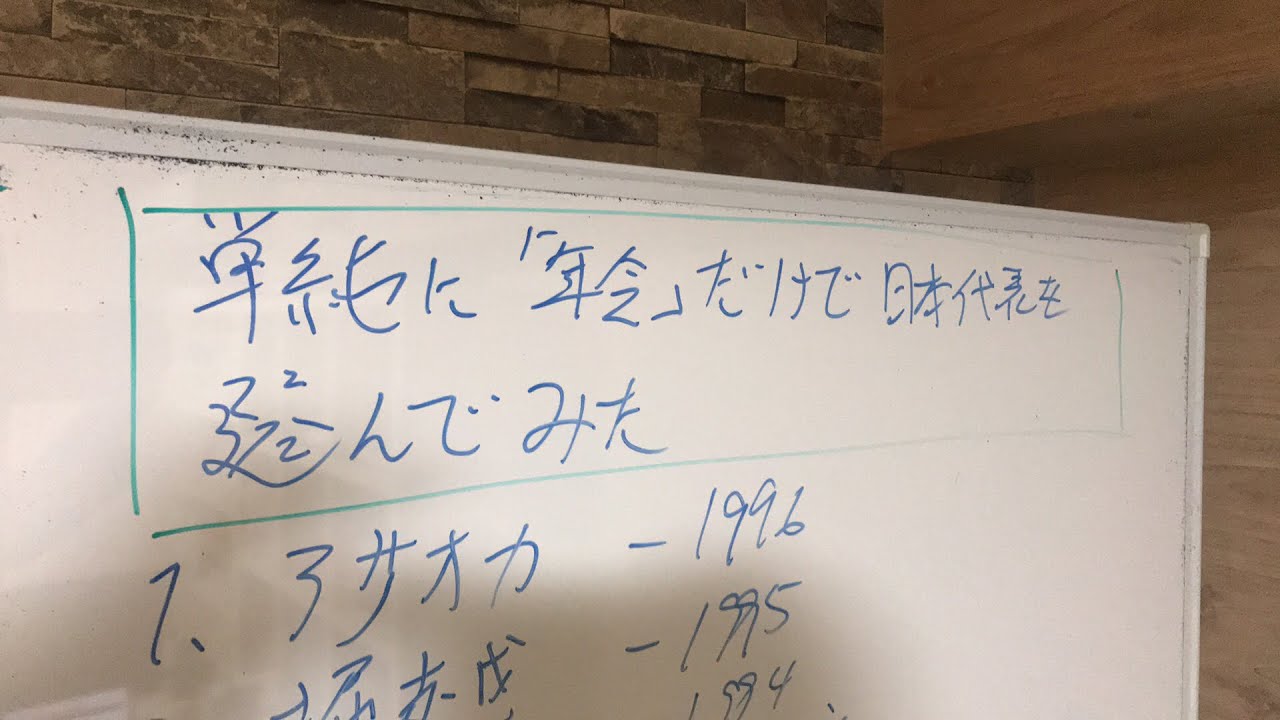 単純に「年令」だけで日本代表を
選んでみた
1、アサオカ -1996
堀恭成 -1995
1994